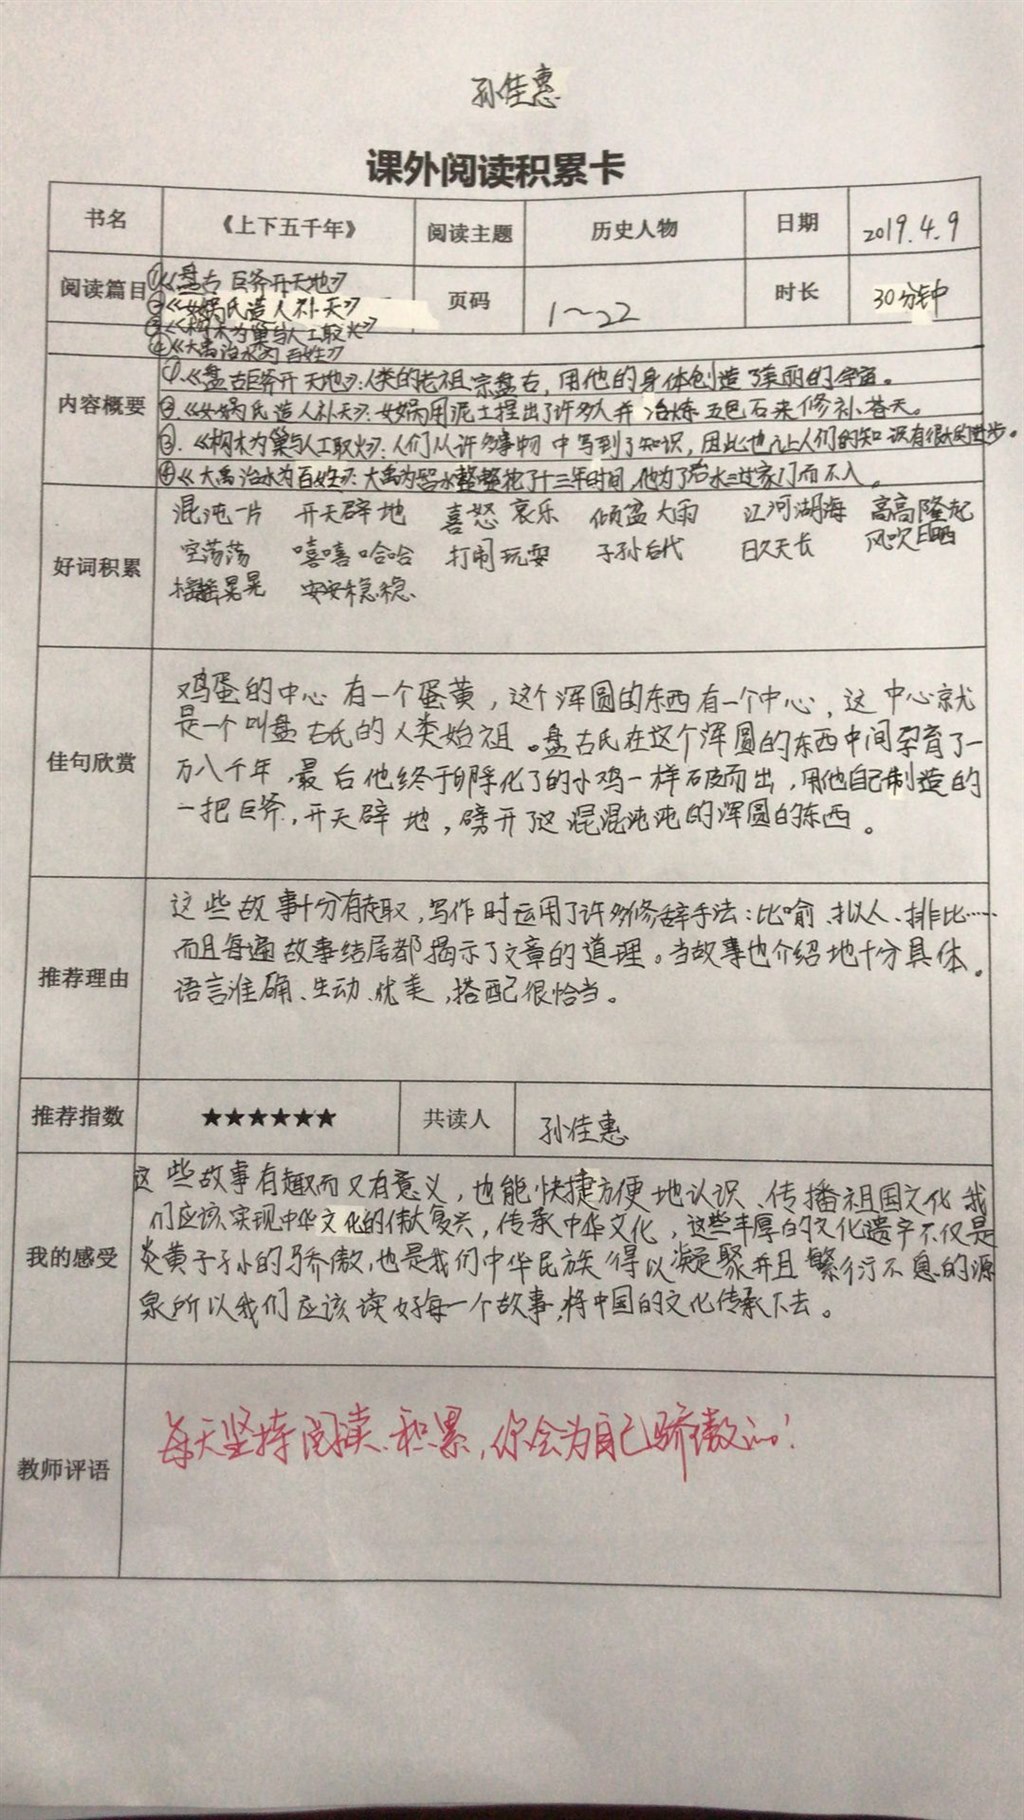 孙佳惠
课外阅读积累卡
书名 《上下五千年》 阅读主题 历史人物 日期 2019.4.9
阅读篇目 ①《盘古巨斧开天地》 页码 1~22 时长 30分钟
②《女娲氏造人补天》
③《构木为巢与人工取火》
④《大禹治水为百姓》
内容概要 ①.《盘古巨斧开天地》:人类的老祖宗盘古,用他的身体创造了美丽的宇宙。
②.《女娲氏造人补天》:女娲用泥土捏出了许多人并冶炼五色石来修补苍天。
③.《构木为巢与人工取火》:人们从许多事物中写到了知识,因此也让人们的知识有很大的进步。
④《大禹治水为百姓》:大禹为治水整整花了十三年时间,他为了治水三过家门而不入。
好词积累 混沌一片 开天辟地 喜怒哀乐 倾盆大雨 江河湖海 高高隆起
空荡荡 嘻嘻哈哈 打闹玩耍 子孙后代 日久天长 风吹日晒
摇摇晃晃 安安稳稳
佳句欣赏 鸡蛋的中心有一个蛋黄,这个浑圆的东西有一个中心,这中心就
是一个叫盘古氏的人类始祖。盘古氏在这个浑圆的东西中间孕育了一
万八千年,最后他终于孵化了的小鸡一样破而出,用他自己制造的
一把巨斧,开天辟地,劈开了这混混沌沌的浑圆的东西。
推荐理由 这些故事十分有趣,写作时运用了许多修辞手法:比喻、拟人、排比……
而且每遍故事结尾都揭示了文章的道理。当故事也介绍地十分具体。
语言准确、生动、优美,搭配很恰当。
推荐指数 ★★★★★★ 共读人 孙佳惠
我的感受 这些故事有趣而又有意义,也能快捷方便地认识、传播祖国文化我
们应该实现中华文化的伟大复兴,传承中华文化,这些丰厚的文化遗产不仅是
炎黄子孙的骄傲,也是我们中华民族得以凝聚并且繁衍不息的源
泉所以我们应该读好每一个故事,将中国的文化传承下去。
教师评语 每天坚持阅读、积累,你会为自己骄傲的!